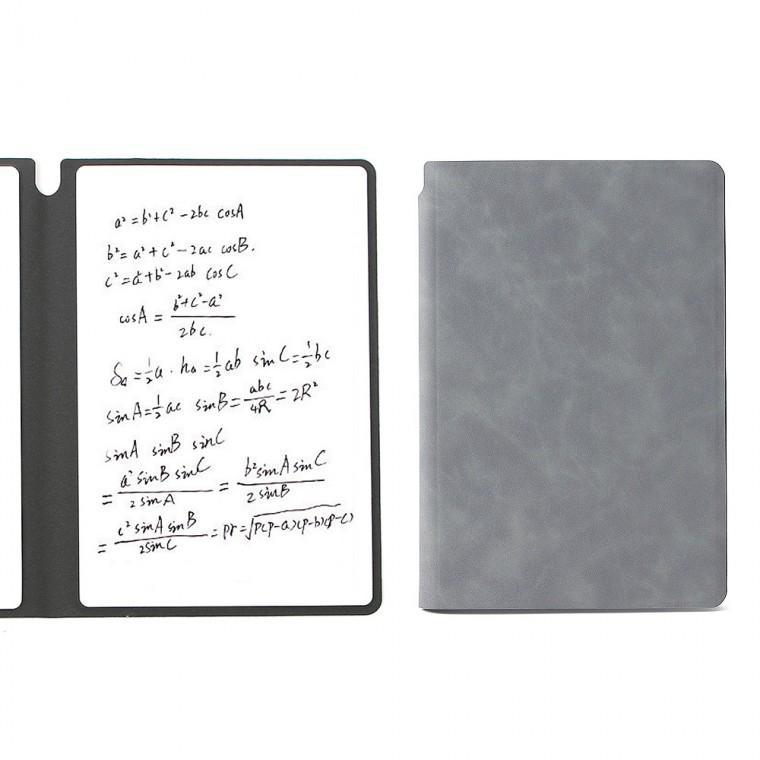 a² = b²+c² -2bc cosA
b² = a²+c² -2ac cosB.
c² = a²+b² -2ab cosC
cosA = \frac{b²+c²-a²}{2bc.}
S△ = \frac{1}{2}a · ha = \frac{1}{2}ab sinC = \frac{1}{2}bc
sinA = \frac{1}{2}ac sinB = \frac{abc}{4R} = 2R²
sinA sinB sinC
= \frac{a² sinB sinC}{2 sinA} = \frac{b² sinA sinC}{2 sinB}
= \frac{c² sinA sinB}{2 sinC} = pr = √p(p-a)(p-b)(p-c)